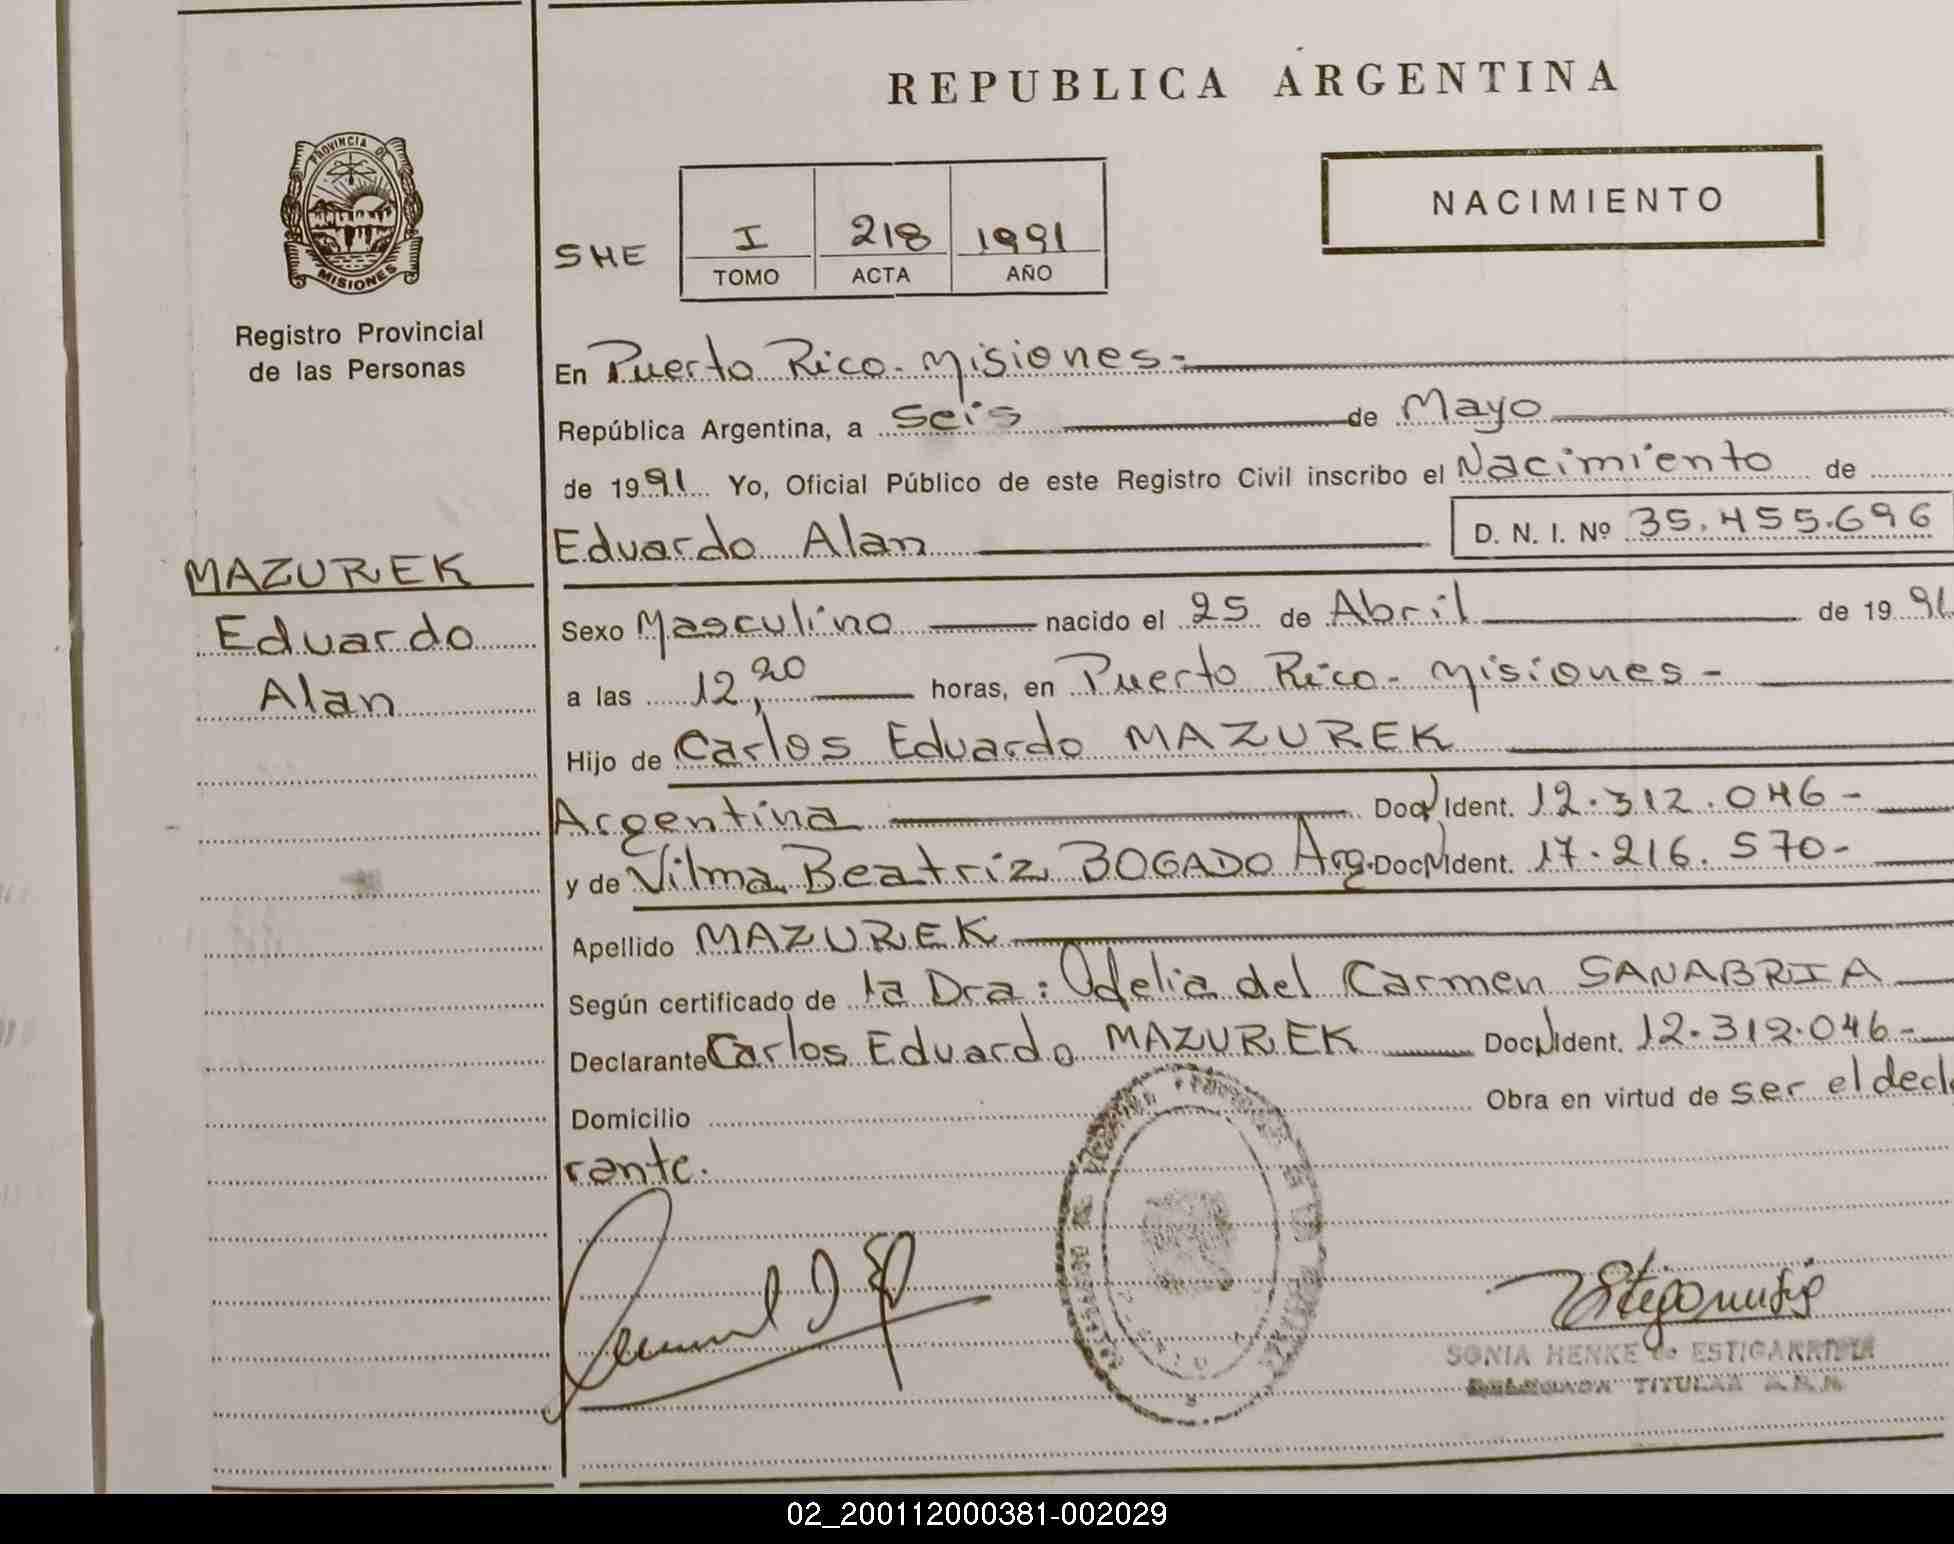 REPUBLICA ARGENTINA
PROVINCIA DE
MISIONES
Registro Provincial
de las Personas
NACIMIENTO
SHE
I 218 1991
TOMO ACTA AÑO
En Puerto Rico - Misiones -
República Argentina, a seis de Mayo
de 1991 Yo, Oficial Público de este Registro Civil inscribo el Nacimiento de
Eduardo Alan D. N. I. Nº 35.455.696
MAZUREK
Eduardo
Alan
Sexo Masculino nacido el 25 de Abril de 1991
a las 12,20 horas, en Puerto Rico - Misiones -
Hijo de Carlos Eduardo MAZUREK
Argentina Doc. Ident. 12.312.046-
y de Vilma Beatriz BOGADO Arg. Doc. Ident. 17.216.570-
Apellido MAZUREK
Según certificado de la Dra: Odelia del Carmen SANABRIA
Declarante Carlos Eduardo MAZUREK Doc. Ident. 12.312.046-
Domicilio Obra en virtud de ser el decla
rante.
SONIA HENKE de ESTIGARRIBIA
TITULAR
02_200112000381-002029